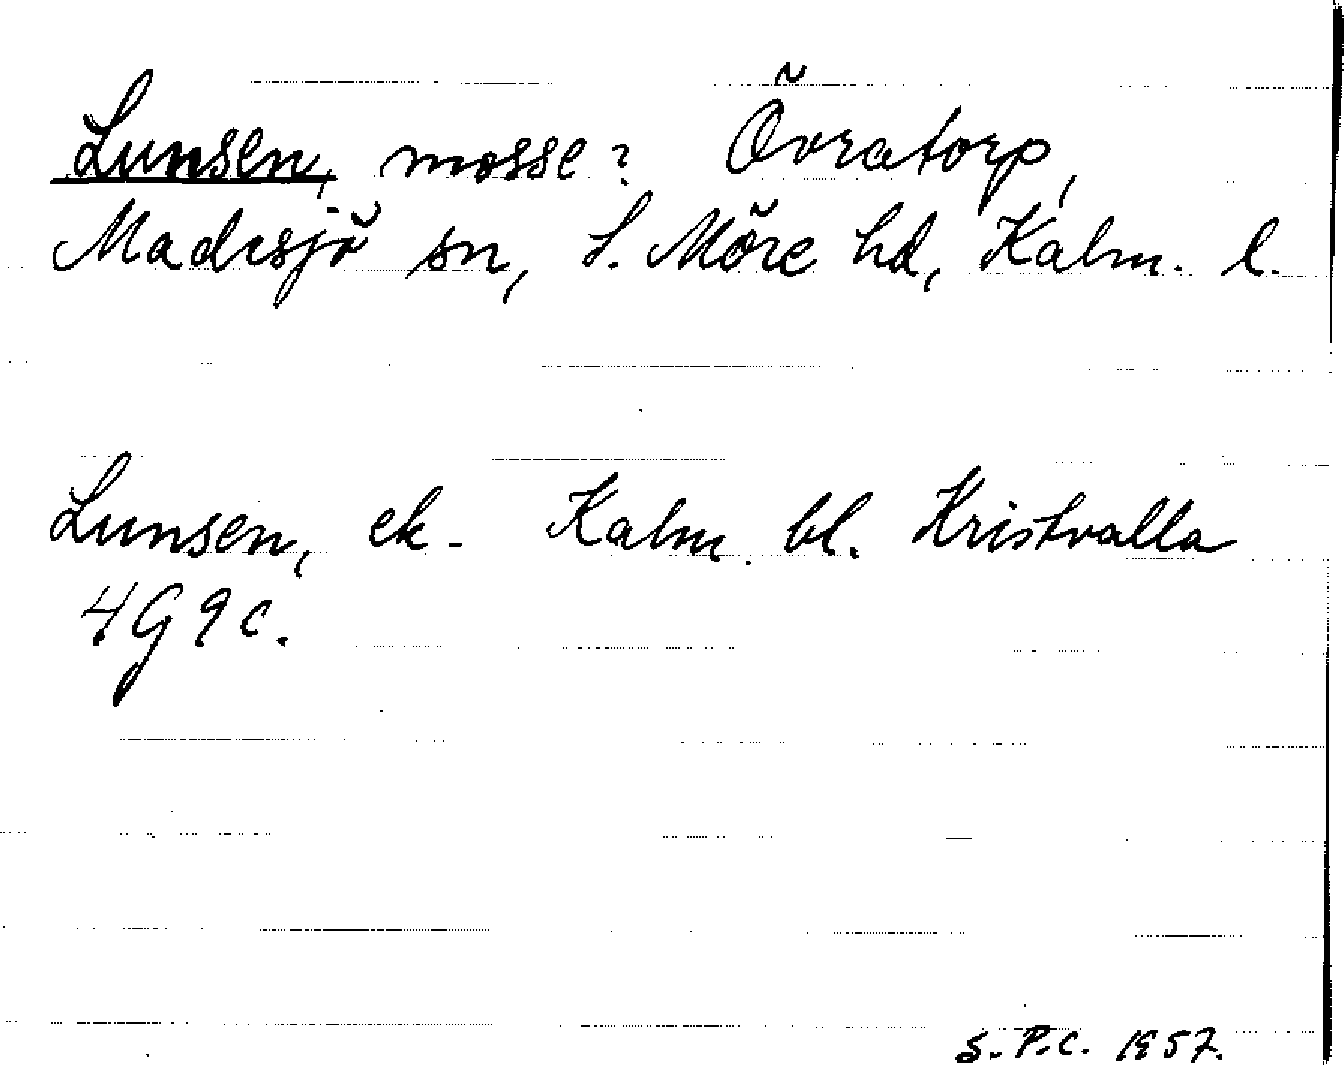 Lunsen, mosse? Övratorp,
Madesjö sn, S. Möre hd, Kalm. l.
Lunsen, ek. Kalm. bl. Kristvalla
4G 9c.
S.P.C. 1957.